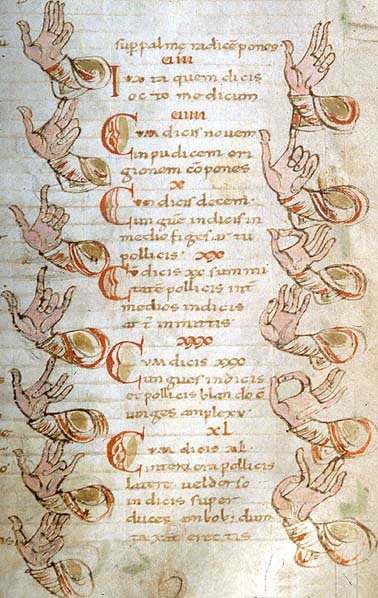 sup palmę radicē pones
uiii
quem dicis
oc to me dicum
uiiii
Cum dicis nouem
inpudicem eri
gionem cōpones
x
Cum dicis decem
ungūe indicis in
medio figes ar tu
pollicis · xx
Cū dicis xx summi
tate pollicis int
medios indicis
inmittis
xxx
Cum dicis xxx
ungues indicis
et pollicis blan do
iunges amplexu
xl
Cum dicis xl
interiora pollicis
latere uel dorso
in dicis super
duces ambob; dum
taxat erectis